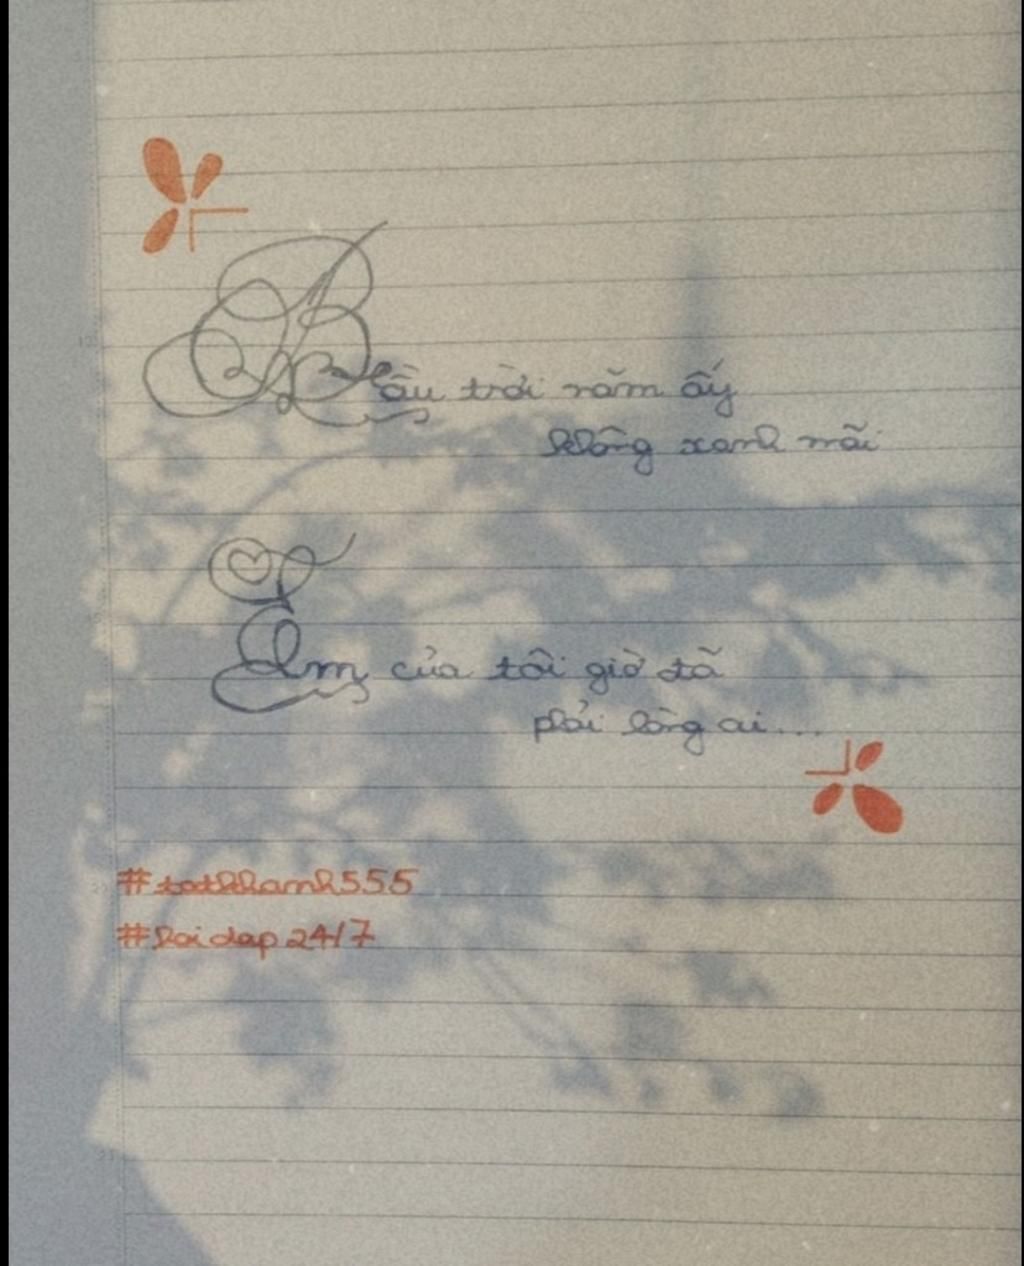 Bầu trời năm ấy
không xanh mãi
Em của tôi giờ đã
phải lòng ai...
#totkhanh555
#hoidap24/7